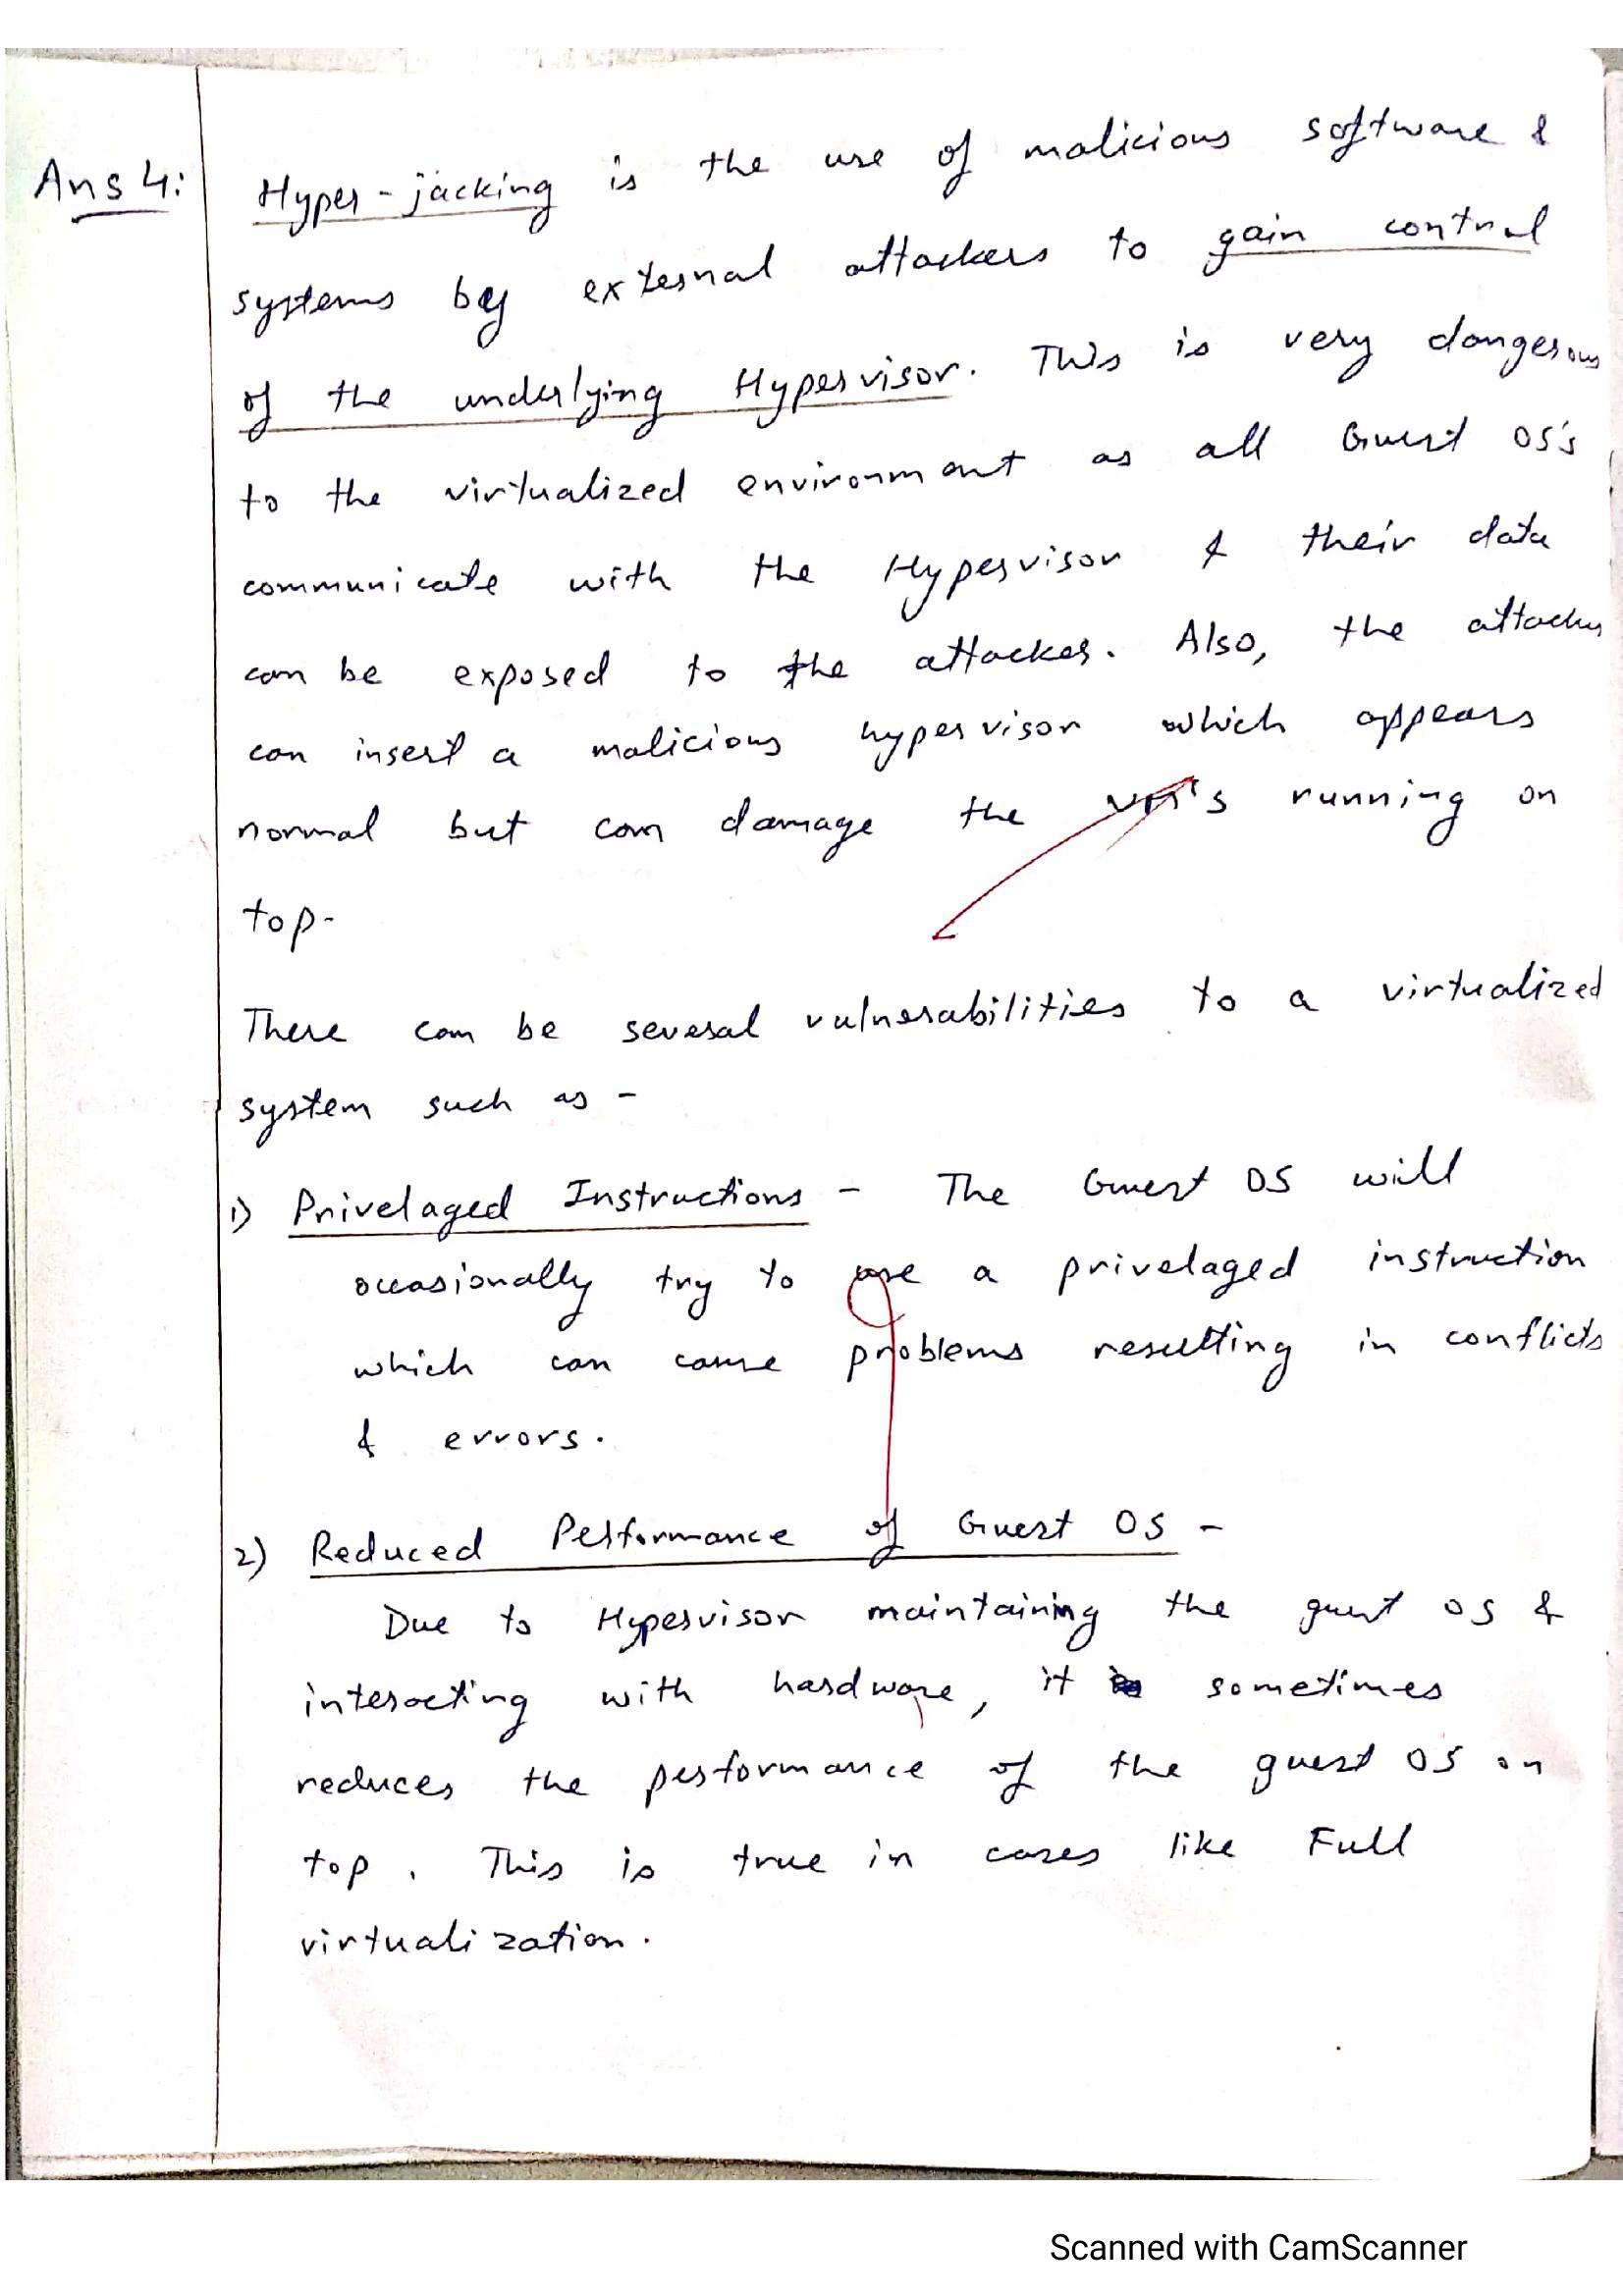 Ans 4: Hyper-jacking is the use of malicious software &
systems by external attackers to gain control
of the underlying Hypervisor. This is very dangerous
to the virtualized environment as all Guest OS's
communicate with the Hypervisor & their data
can be exposed to the attacker. Also, the attacker
can insert a malicious hypervisor which appears
normal but can damage the VM's running on
top.
There can be several vulnerabilities to a virtualized
system such as -
1) Privelaged Instructions - The Guest OS will
occasionally try to use a privelaged instruction
which can cause problems resulting in conflicts
& errors.
2) Reduced Performance of Guest OS -
Due to Hypervisor maintaining the guest OS &
interacting with hardware, it sometimes
reduces the performance of the guest OS on
top. This is true in cases like Full
virtualization.
Scanned with CamScanner